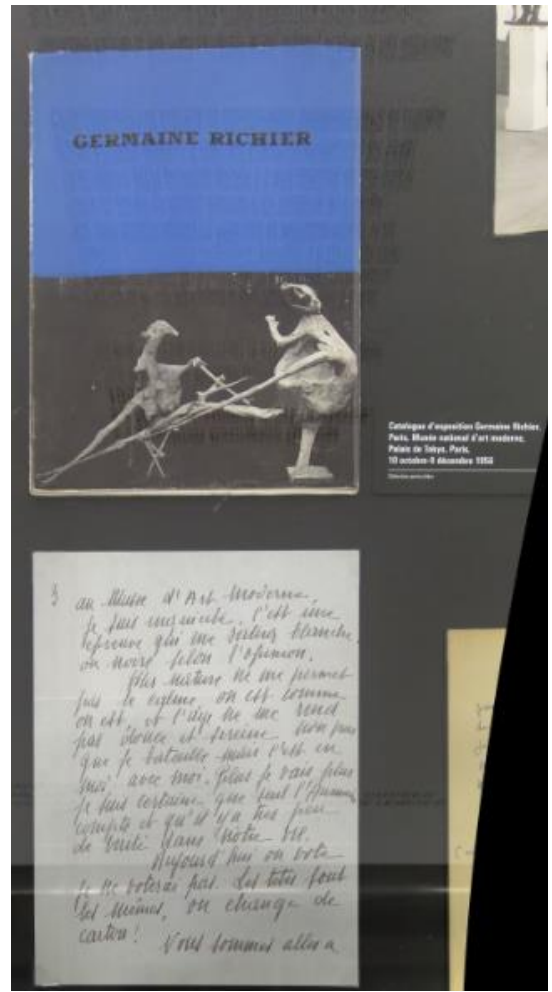 GERMAINE RICHIER
Catalogue d'exposition Germaine Richier,
Paris, Musée national d'art moderne,
Palais de Tokyo, Paris,
10 octobre-9 décembre 1956
3 au Musée d'Art Moderne,
je suis inquiète. C'est une
épreuve qui me sortira blanche
ou noire selon l'opinion.
Ma nature ne me permet
pas le calme on est comme
on est, et l'âge ne me rend
pas douce et sereine. Non pas
que je bataille mais c'est en
moi avec moi. Plus je vais plus
je suis certaine que seul l'humain
compte et qu'il y a très peu
de vérité dans notre vie.
Aujourd'hui on vote
je ne voterai pas. Les têtes sont
les mêmes, on change de
carton!
Nous sommes allés à